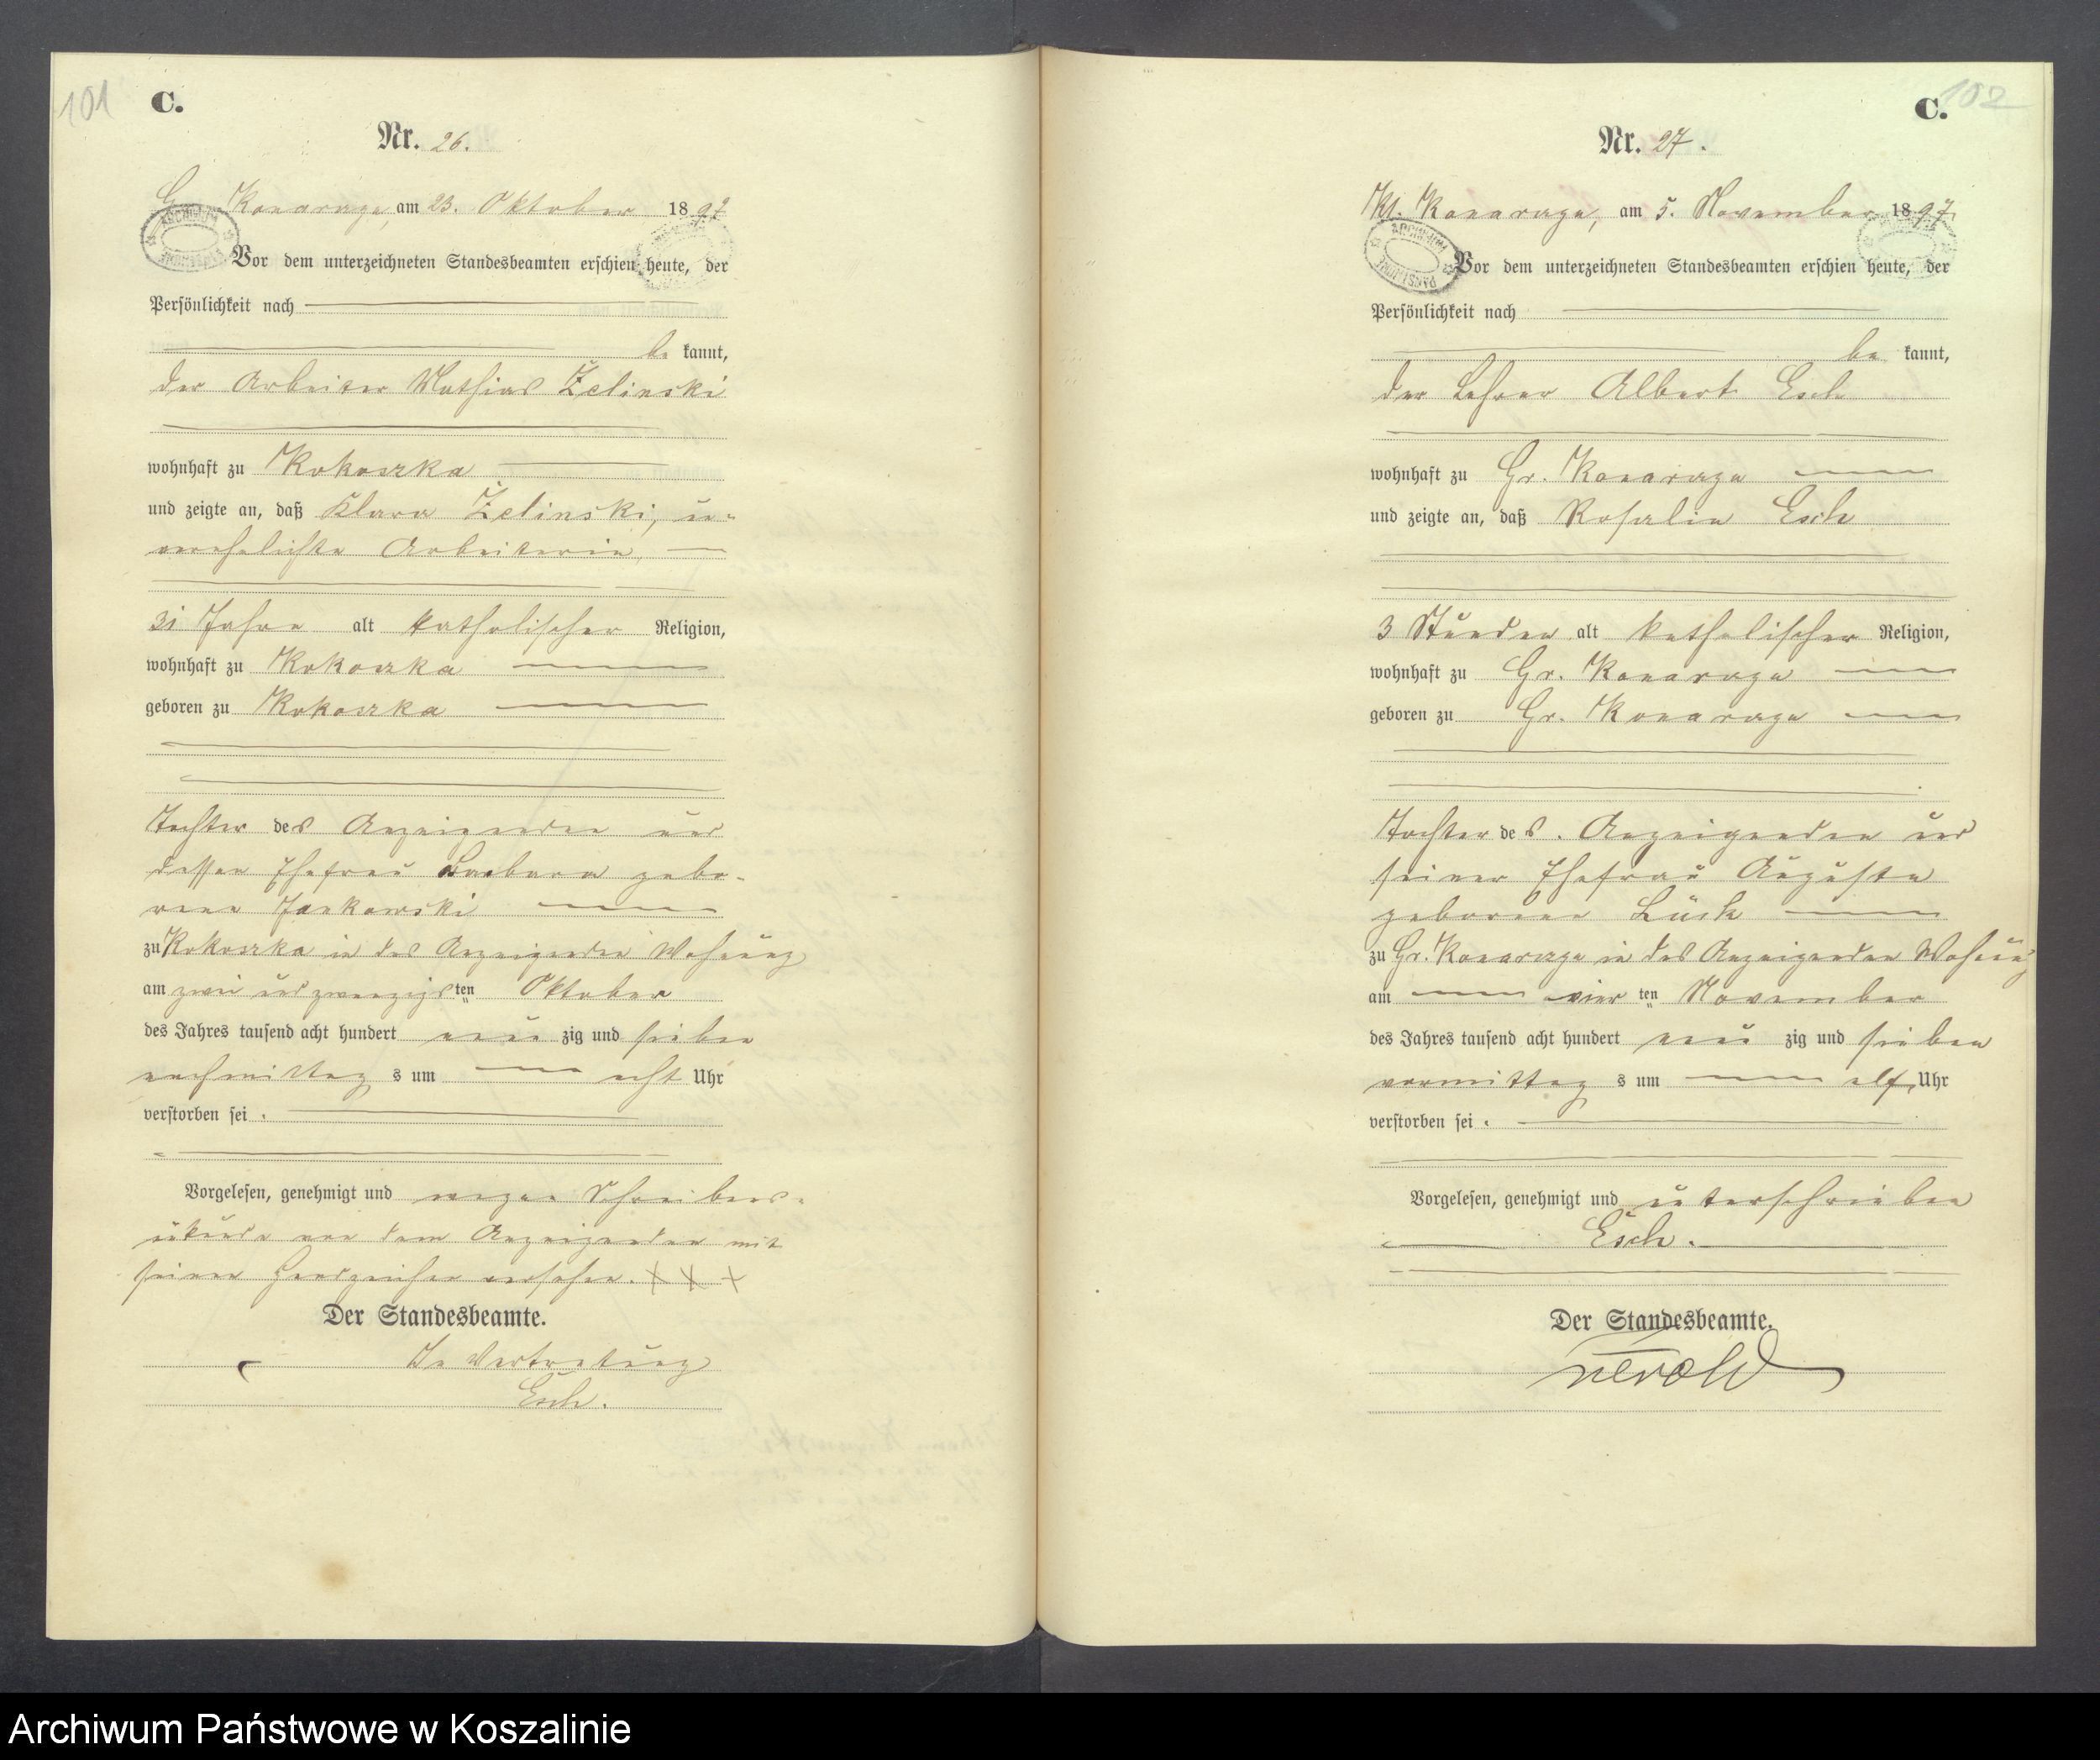 101
C.
Nr. 26.
Gr. Konarzyn, am 23. Oktober 1897
Vor dem unterzeichneten Standesbeamten erschien heute, der
Persönlichkeit nach
be kannt,
der Arbeiter Mathias Żelinski
wohnhaft zu Kokoszka
und zeigte an, daß Klara Żelinski, un-
verehelichte Arbeiterin,
31 Jahre alt katholischer Religion,
wohnhaft zu Kokoszka
geboren zu Kokoszka
Tochter des Anzeigenden und
dessen Ehefrau Barbara gebo-
rene Jankowski
zu Kokoszka in des Anzeigenden Wohnung
am zwei und zwanzigsten Oktober
des Jahres tausend acht hundert neun zig und sieben
nachmittag s um acht Uhr
verstorben sei.
Vorgelesen, genehmigt und wegen Schreibens-
unkunde von dem Anzeigenden mit
seinen Handzeichen versehen. + + +
Der Standesbeamte.
In Vertretung
Esch.
102
C.
Nr. 27.
Kl. Konarzyn, am 5. November 1897
Vor dem unterzeichneten Standesbeamten erschien heute, der
Persönlichkeit nach
be kannt,
der Lehrer Albert Esch
wohnhaft zu Gr. Konarzyn
und zeigte an, daß Rosalie Esch
3 Stunden alt katholischer Religion,
wohnhaft zu Gr. Konarzyn
geboren zu Gr. Konarzyn
Tochter des Anzeigenden und
seiner Ehefrau Auguste
geborenen Lück
zu Gr. Konarzyn in des Anzeigenden Wohnung
am vier ten November
des Jahres tausend acht hundert neun zig und sieben
vormittag s um elf Uhr
verstorben sei.
Vorgelesen, genehmigt und unterschrieben
Esch.
Der Standesbeamte.
Archiwum Państwowe w Koszalinie